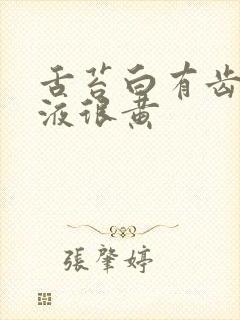 舌苔白有齿
液很黄
張肇婷